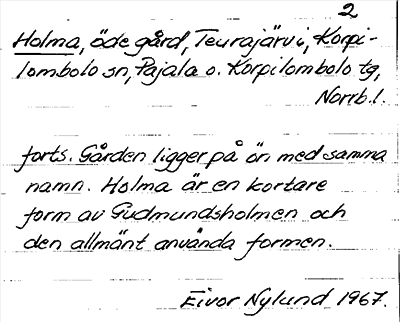 2
Holma, öde gård, Teurajärvi, Korpi-
lombolo sn, Pajala o. Korpilombolo tg,
Norrb.l.
forts. Gården ligger på ön med samma
namn. Holma är en kortare
form av Gudmundsholmen och
den allmänt använda formen.
Eivor Nylund 1967.